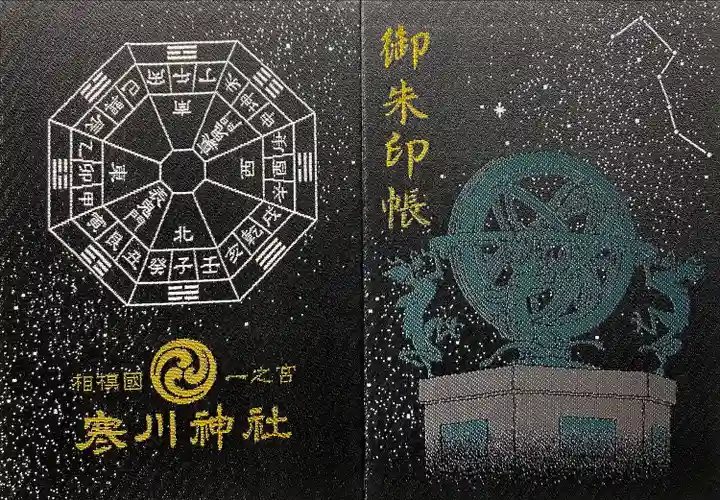 御朱印帳
丁午丙
未坤申
庚酉辛
戌乾亥
壬子癸
丑艮寅
甲卯乙
辰巽巳
南
西
北
東
相模國 一之宮
寒川神社